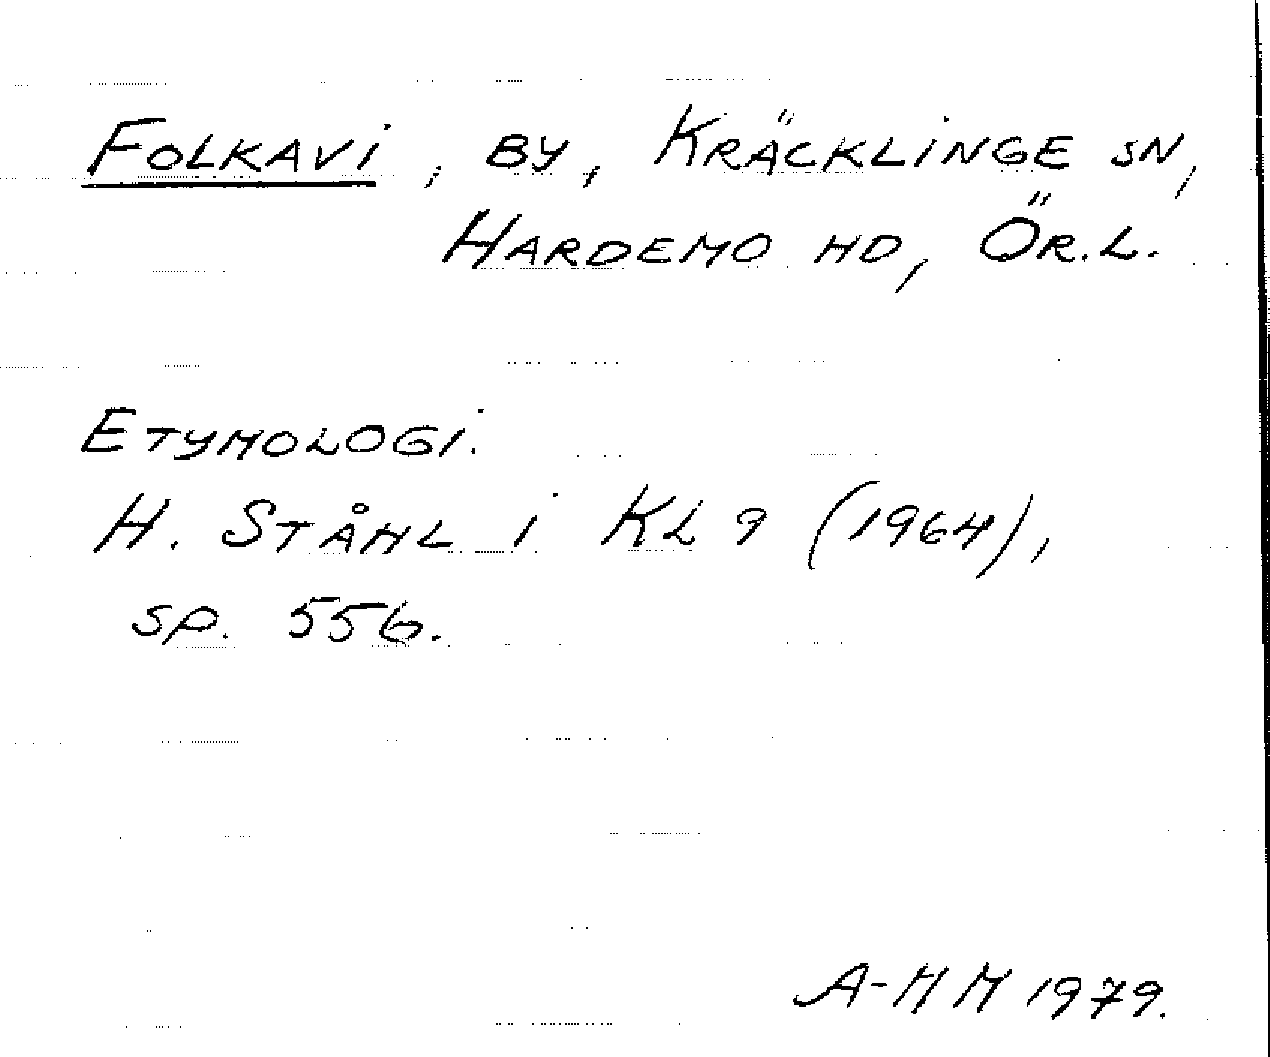 FOLKAVI, BY, KRÄCKLINGE SN,
HARDEMO HD, ÖR.L.
ETYMOLOGI.
H. STÅHL I KL 9 (1964),
SP. 556.
A-MM 1979.